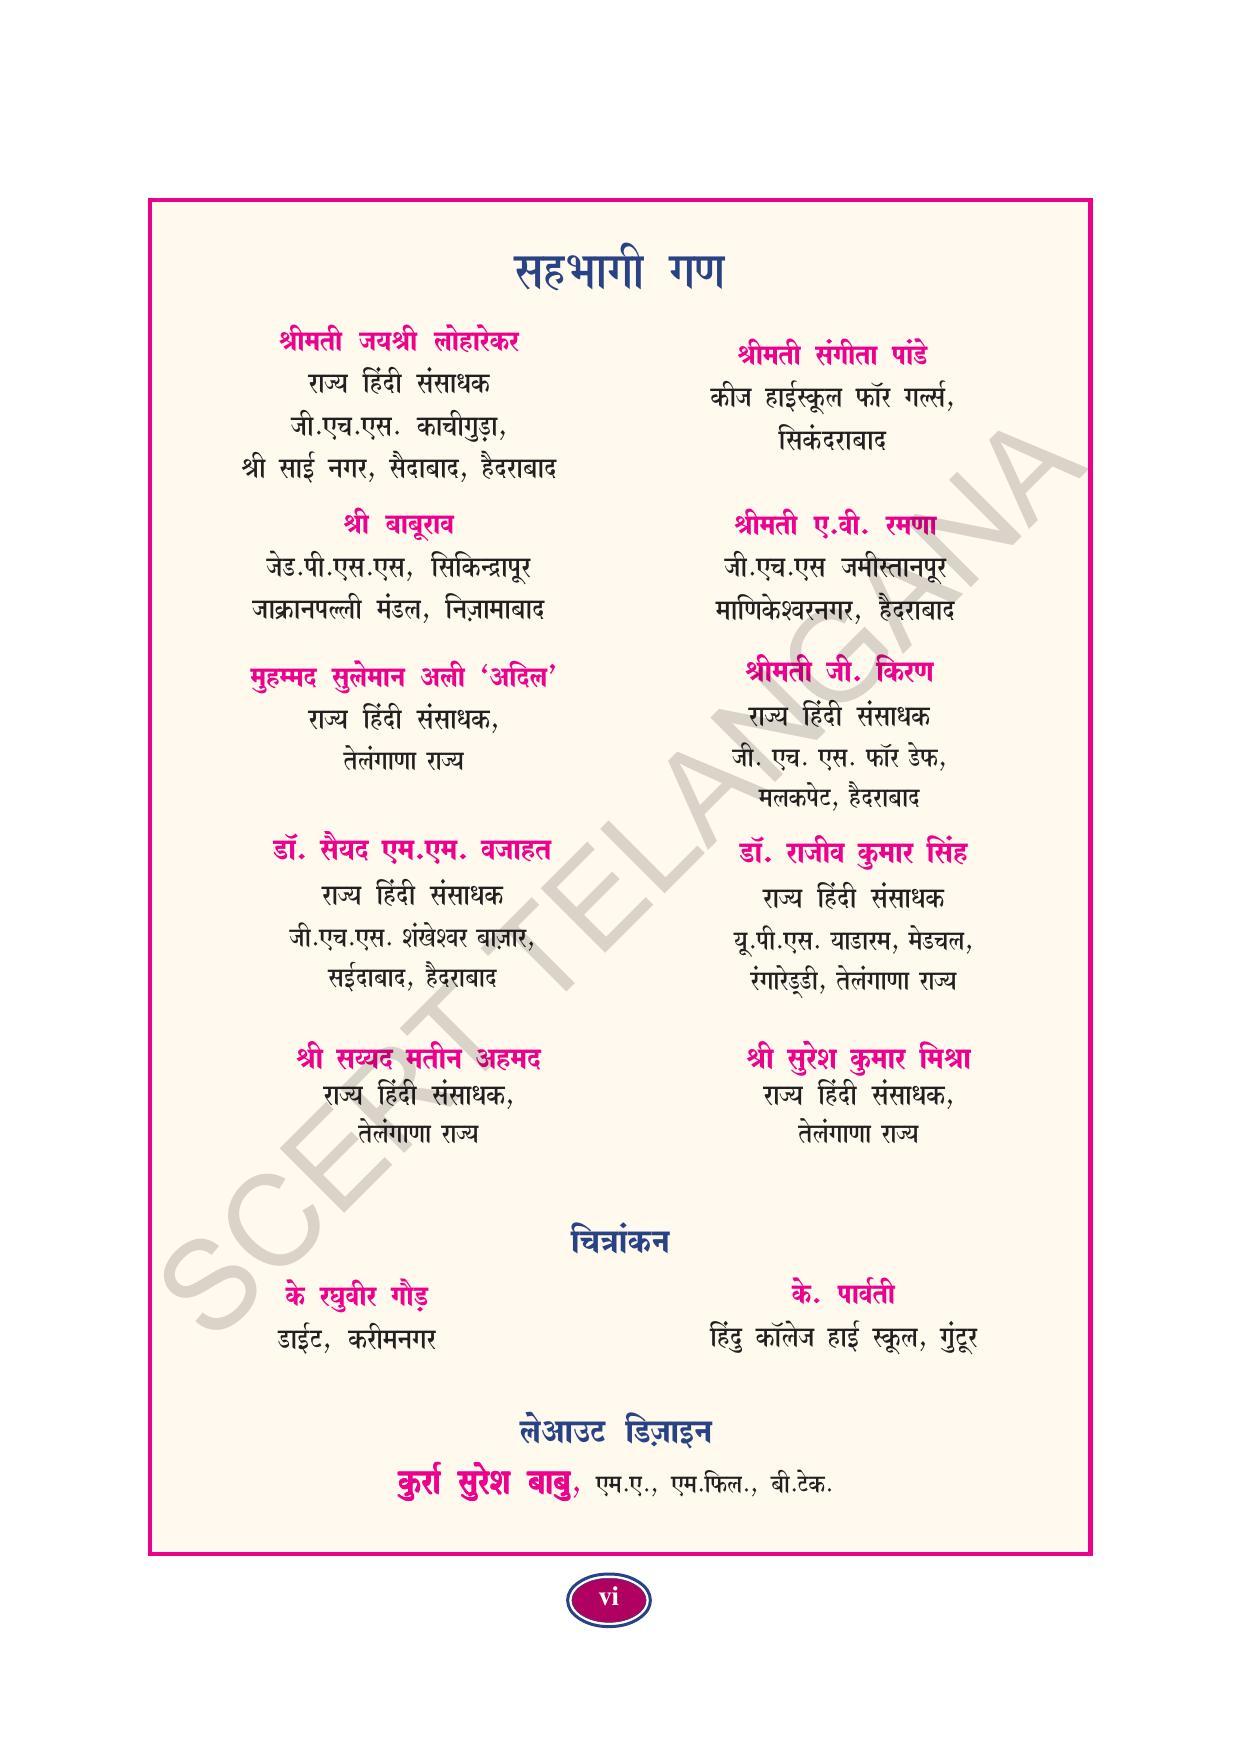 सहभागी गण
श्रीमती जयश्री लोहारेकर
राज्य हिंदी संसाधक
जी.एच.एस. काचीगुड़ा,
श्री साई नगर, सैदाबाद, हैदराबाद
श्रीमती संगीता पांडे
कीज हाईस्कूल फॉर गर्ल्स,
सिकंदराबाद
श्री बाबूराव
जेड.पी.एस.एस, सिकिन्द्रापूर
जाक्रानपल्ली मंडल, निज़ामाबाद
श्रीमती ए.वी. रमणा
जी.एच.एस जमीस्तानपूर
माणिकेश्वरनगर, हैदराबाद
मुहम्मद सुलेमान अली ‘अदिल’
राज्य हिंदी संसाधक,
तेलंगाणा राज्य
श्रीमती जी. किरण
राज्य हिंदी संसाधक
जी. एच. एस. फॉर डेफ,
मलकपेट, हैदराबाद
डॉ. सैयद एम.एम. वजाहत
राज्य हिंदी संसाधक
जी.एच.एस. शंखेश्वर बाज़ार,
सईदाबाद, हैदराबाद
डॉ. राजीव कुमार सिंह
राज्य हिंदी संसाधक
यू.पी.एस. याडारम, मेडचल,
रंगारेड्डी, तेलंगाणा राज्य
श्री सय्यद मतीन अहमद
राज्य हिंदी संसाधक,
तेलंगाणा राज्य
श्री सुरेश कुमार मिश्रा
राज्य हिंदी संसाधक,
तेलंगाणा राज्य
चित्रांकन
के रघुवीर गौड़
डाईट, करीमनगर
के. पार्वती
हिंदु कॉलेज हाई स्कूल, गुंटूर
लेआउट डिज़ाइन
कुर्रा सुरेश बाबु, एम.ए., एम.फिल., बी.टेक.
vi
SCERT TELANGANA